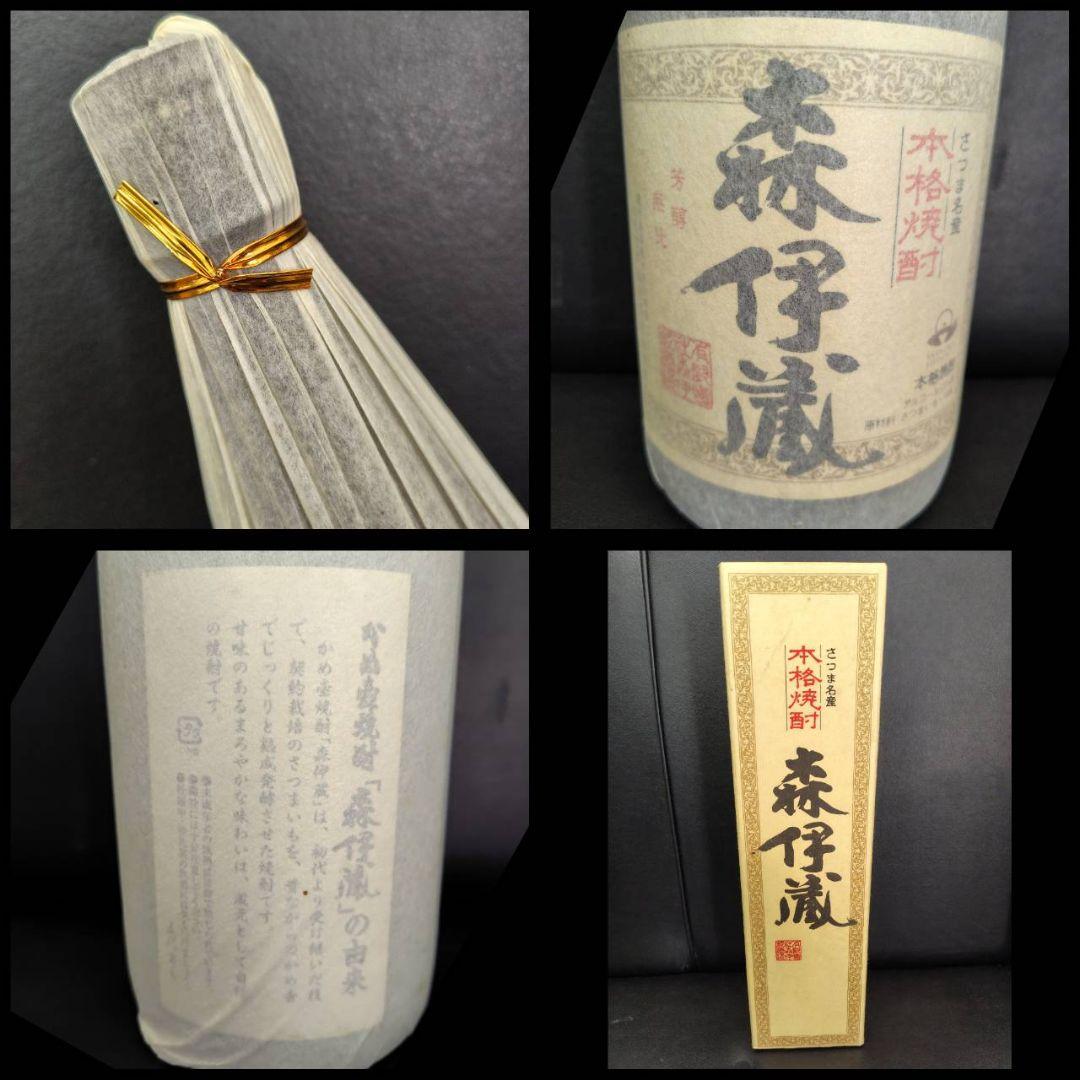 さつま名産
本格焼酎
森伊蔵
芳醇
無比
本格焼酎
かめ壺焼酎「森伊蔵」の由来
かめ壺焼酎「森伊蔵」は、初代より受け継いだ技
で、契約栽培のさつまいもを、昔ながらのかめ壺
でじっくりと熟成発酵させた焼酎です。
甘味のあるまろやかな味わいは、蔵元として自慢
の焼酎です。
さつま名産
本格焼酎
森伊蔵